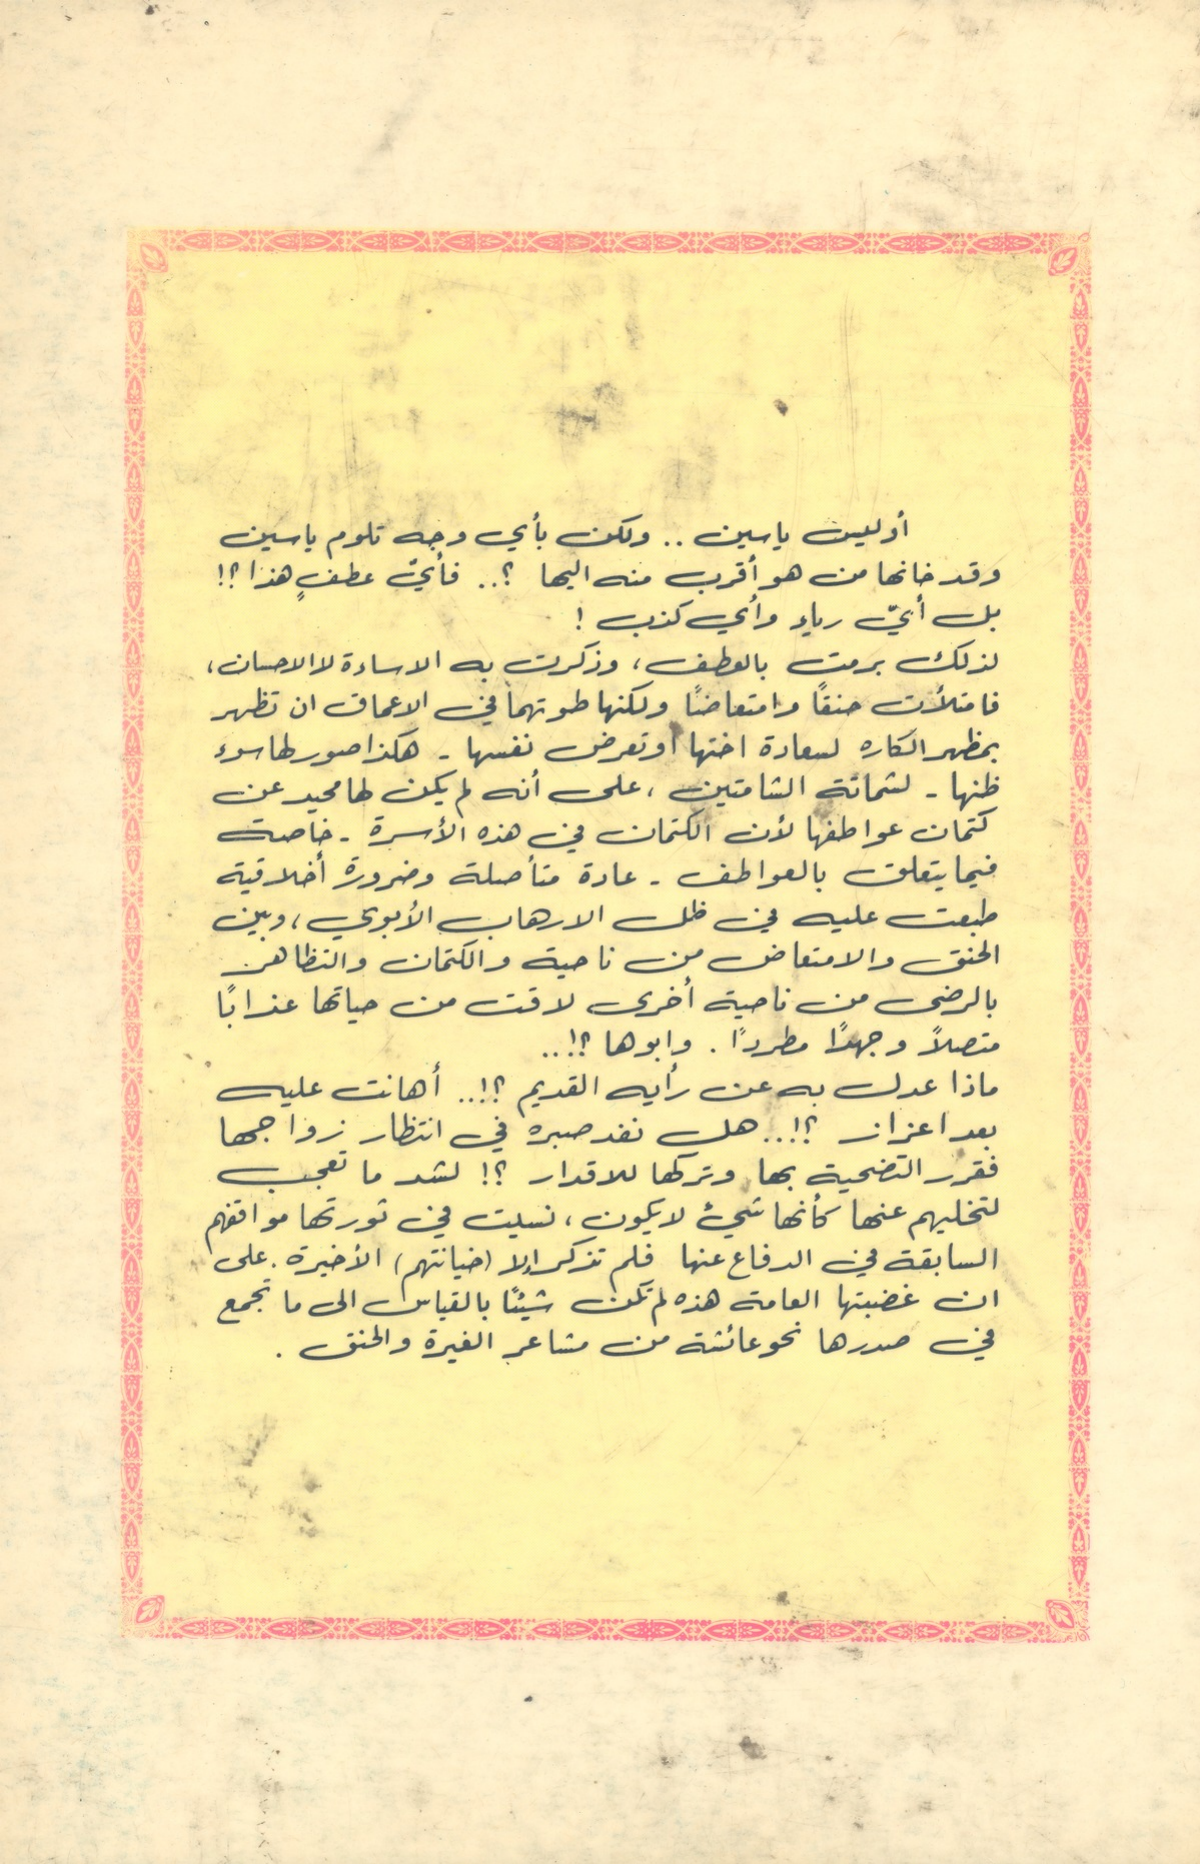 أولهين ياسين .. ولكن بأي وجه تلوم ياسين
وقد خانها من هو أقرب منه اليها ؟.. فأيّ عطفٍ هذا ؟!
بل أيّ رياءٍ وأي كذب !
لذلك برمت بالعطف ، وذكرت به الاساءة لا الاحسان ،
فامتلأت حنقًا وامتعاضًا ولكنها طوتهما في الاعماق ان تظهر
بمظهر الكاره لسعادة اختها او تعرض نفسها - هكذا صور لها سوء
ظنها - لشماتة الشامتين ، على أنه لم يكن لها محيد عن
كتمان عواطفها لأن الكتمان في هذه الأسرة - خاصة
فيما يتعلق بالعواطف - عادة متأصلة وضرورة أخلاقية
طبعت عليه في ظل الارهاب الأبوي ، وبين
الحنق والامتعاض من ناحية والكتمان والتظاهر
بالرضى من ناحية أخرى لاقت من حياتها عذابًا
متصلاً وجهدًا مطردًا . وابوها ؟!..
ماذا عدل به عن رأيه القديم ؟!.. أهانت عليه
بعد اعزاز ؟!.. هل نفد صبره في انتظار زواجها
فقرر التضحية بها وتركها للاقدار ؟! لشد ما تعجب
لتخليهم عنها كأنها شيئ لا يكون ، نسيت في ثورتها مواقفهم
السابقة في الدفاع عنها فلم تذكر إلا (خيانتهم) الأخيرة . على
ان غضبتها العامة هذه لم تكن شيئًا بالقياس الى ما تجمع
في صدرها نحو عائشة من مشاعر الغيرة والحنق .